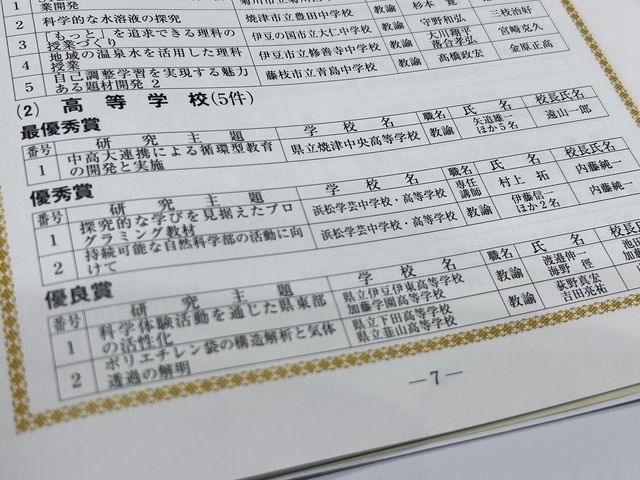 業開発
2 科学的な水溶液の探究 焼津市立豊田中学校 教諭 守野和弘 三枝治好
3 「もっと」を追求できる理科の授業づくり 伊豆の国市立大仁中学校 教諭 大川翔平 落合孝弘 宮崎克久
4 地域の温泉水を活用した理科授業 伊豆市立修善寺中学校 教諭
5 自己調整学習を実現する魅力ある題材開発 2 藤枝市立青島中学校 教諭 髙橋政宏 金原正高
(2) 高等学校(5件)
最優秀賞
番号 研究主題 学校名 職名 氏名 校長氏名
1 中高大連携による循環型教育の開発と実施 県立焼津中央高等学校 教諭 矢追雄一 ほか5名 遠山一郎
優秀賞
番号 研究主題 学校名 職名 氏名 校長氏名
1 探究的な学びを見据えたプログラミング教材 浜松学芸中学校・高等学校 専任講師 村上拓 内藤純一
2 持続可能な自然科学部の活動に向けて 浜松学芸中学校・高等学校 教諭 伊藤信一 ほか2名 内藤純一
優良賞
番号 研究主題 学校名 職名 氏名 校長
1 科学体験活動を通じた県東部の活性化 県立伊豆伊東高等学校 加藤学園高等学校 教諭 渡邉伸一 海野 徑
2 ポリエチレン袋の構造解析と気体透過の解明 県立下田高等学校 県立韮山高等学校 教諭 荻野真宏 吉田亮祐
—7—